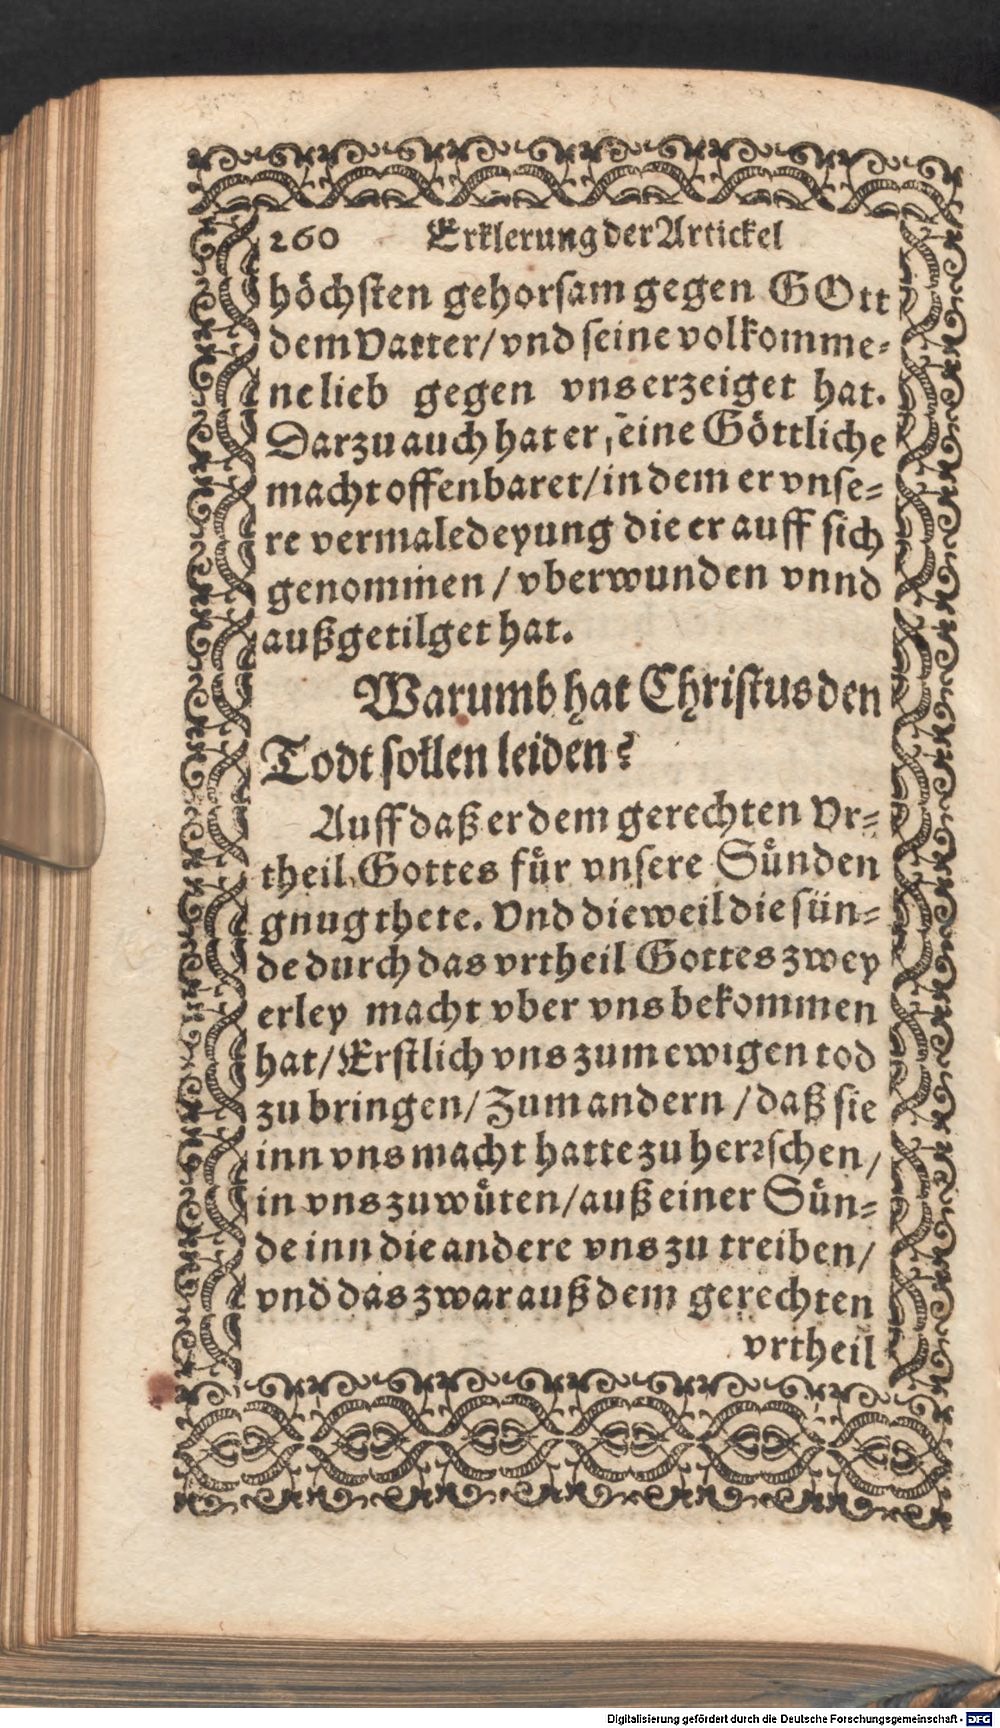 260 Erklerung der Artickel
höchſten gehorſam gegen GOtt
dem Vatter/ vnd ſeine volkomme⸗
ne lieb gegen vns erzeiget hat.
Darzu auch hat er ſeine Göttliche
macht offenbaret/ in dem er vnſe⸗
re vermaledeyung die er auff ſich
genommen / vberwunden vnnd
außgetilget hat.
Warumb hat Chriſtus den
Todt ſollen leiden?
Auff daß er dem gerechten Vr⸗
theil Gottes für vnſere Sünden
gnug thete. Vnd dieweil die ſün⸗
de durch das vrtheil Gottes zwey
erley macht vber vns bekommen
hat/ Erſtlich vns zum ewigen tod
zu bringen/ Zum andern / daß ſie
inn vns macht hatte zu herꝛſchen/
in vns zu wüten/ auß einer Sün⸗
de inn die andere vns zu treiben/
vnd das zwar auß dem gerechten
vrtheil
Digitalisierung gefördert durch die Deutsche Forschungsgemeinschaft - DFG